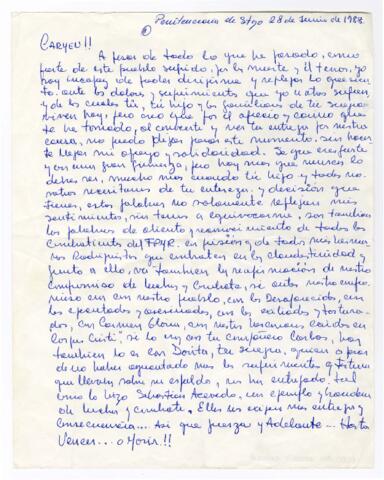 Penitenciaria de Stgo 28 de Junio de 1988.
①
CARMEN!!
A pesar de todo lo que he pasado, como
parte de este pueblo sufrido, por la muerte y el terror, yo
soy incapaz de poder dirigirme y reflejar lo que siento
ante los dolores y sufrimientos que yo
y de los cuales tú, tu hijo y los familiares de tu suegra
viven hoy, pero creo que por el aprecio y cariño que
te he tomado, al conocerte y ver tu entrega por nuestra
causa, no puedo dejar pasar este momento, sin hacerte
llegar mi apoyo y solidaridad. Sé que eres fuerte
y con muy gran firmeza, pero hoy más que nunca lo
debes ser, mucho más cuando tu hijo y todos nosotros
necesitamos de tu entereza, y decisión que
tienes, estas palabras no solamente reflejan mis
sentimientos, sin temor a equivocarme, son también
las palabras de aliento y reconocimiento de todos los
combatientes del FPMR. en prisión y de todos mis hermanos
Rodriguistas que combaten en la clandestinidad y
junto a ello, va también la reafirmación de nuestro
compromiso de lucha y combate, si antes nuestro compromiso
era con nuestro pueblo, con los Desaparecidos, con
los ejecutados y asesinados, con los exiliados y torturados,
con Carmen Gloria, con nuestros hermanos caídos en
Corpus Cristi. si lo era con tu compañero Carlos, hoy
también lo es con Dorita, tu suegra, quien a pesar
de no haber aguantado más los sufrimientos y tortura
que llevaba sobre su espalda, nos ha entregado tal
como lo hizo Sebastián Acevedo, un ejemplo y bandera
de lucha y combate. Ellos nos exigen más entrega y
consecuencia.... Así que fuerza y Adelante... Hasta
Vencer.... o Morir.!!